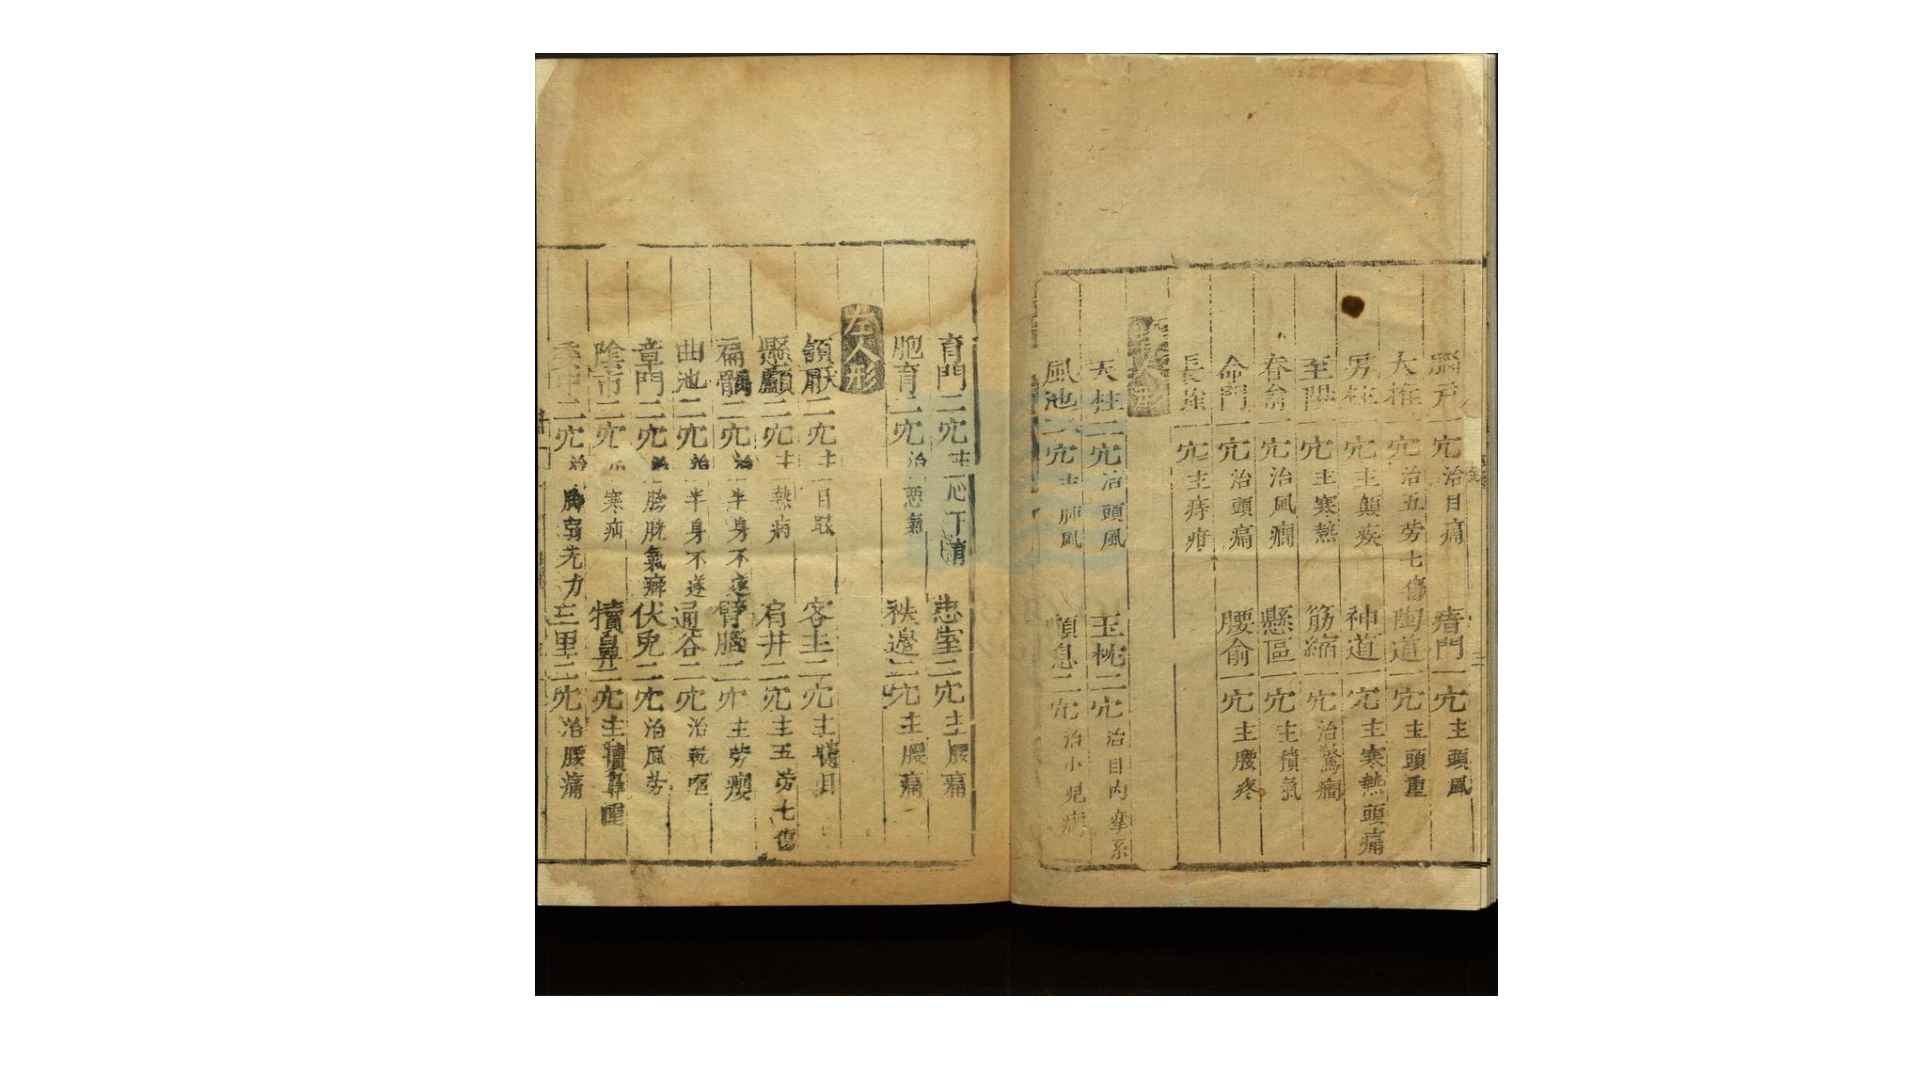 腦戸一穴治目痛 瘖門一穴主頭風
大椎一穴治五劳七傷 陶道一穴主頭重
一穴主顛疾 神道一穴主寒熱頭痛
至陽一穴主寒熱 筋縮一穴治驚癇
一穴治風癎 懸區一穴主積氣
命門一穴治頭痛 腰俞一穴主腰疼
長強一穴主痔疳
天柱二穴治頭風 玉枕二穴治目内系
風池二穴主肺風 顱息二穴治小児癇
肓門二穴主心下 志室二穴主腰痛
胞肓二穴治悪氣 秩邊二穴主腰痛
左人形
頷厭二穴主目眩 客主二穴主目
懸顱二穴主熱病 肩井二穴主五劳七傷
二穴治半身不遂 臂臑二穴主劳癭
曲池二穴治半身不遂 通谷二穴治乾嘔
章門二穴治膀胱氣癖 伏兎二穴治風劳
陰市二穴治寒病 犢鼻二穴主
二穴治脚弱无力 三里二穴治腰痛